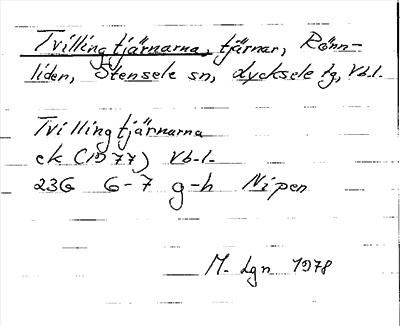 Tvillingtjärnarna, tjärnar, Rönn-
liden, Stensele sn, Lycksele lg, Vb.l.
Tvillingtjärnarna
ek (1977) Vb.l.
23G 6-7 g-h Nipen
M. Lgn 1978